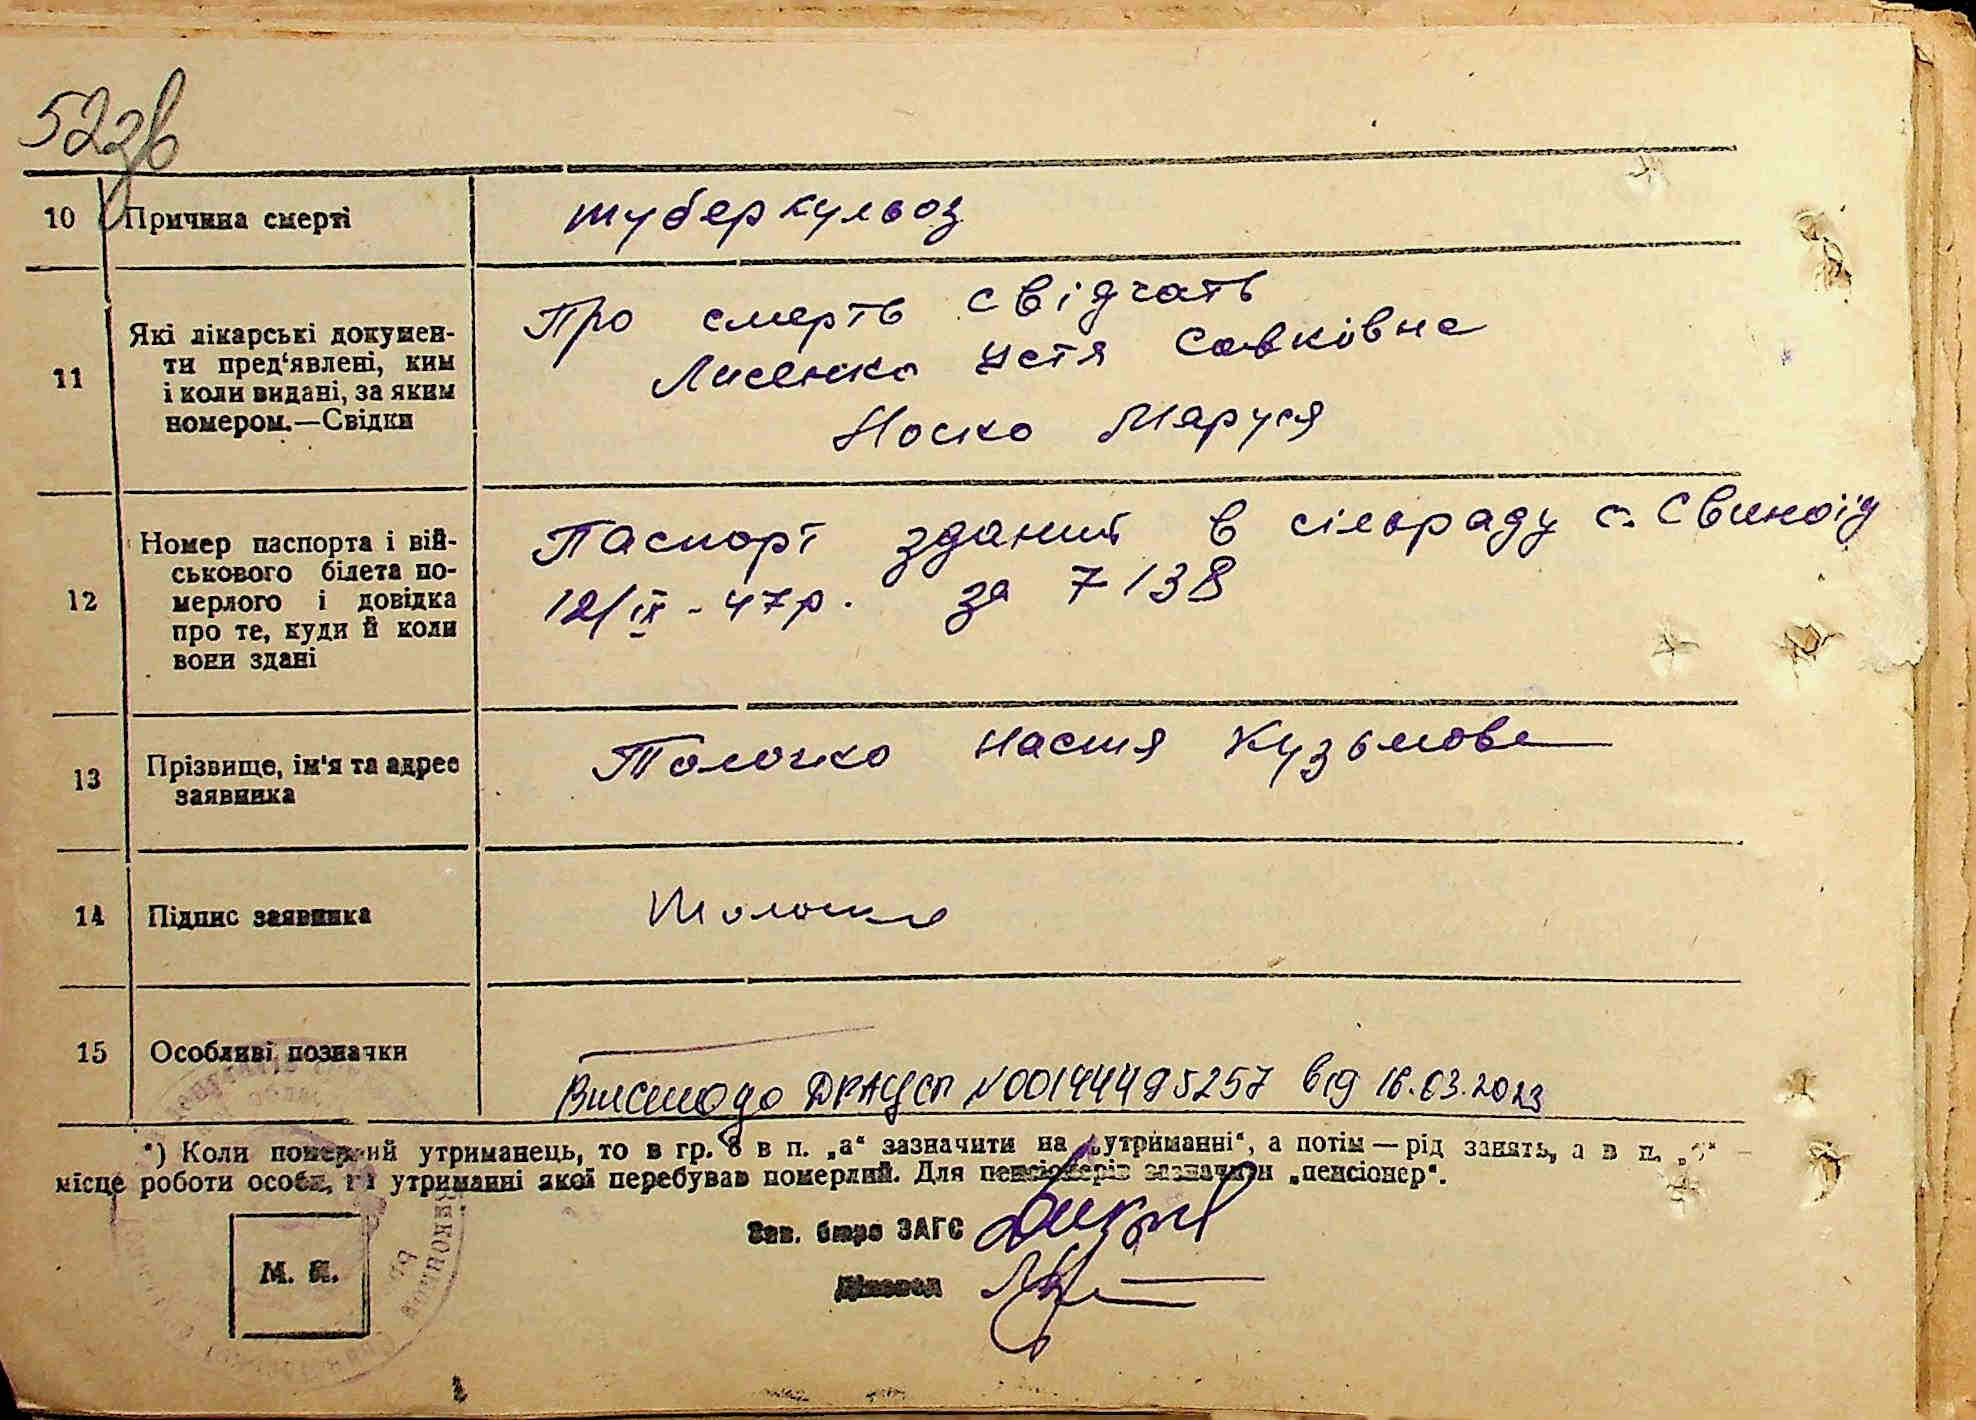 52зв
10 Причина смерті туберкульоз
11 Які лікарські докумен-
ти пред‘явлені, ким
і коли видані, за яким
номером.—Свідки
Про смерть свідчать
Лисенко Устя Савківна
Носко Маруся
12 Номер паспорта і вій-
ськового білета по-
мерлого і довідка
про те, куди й коли
вони здані
Паспорт зданий в сільраду с. Свиноїд
12/IX - 47р. за 7138
13 Прізвище, ім'я та адрес
заявника
Толочко Настя Кузьмовн
14 Підпис заявника Толочко
15 Особливі позначки
Внесено до ДРАЦСГ №00144495257 від 16.03.2023
*) Коли померлий утриманець, то в гр. 8 в п. „а“ зазначити на „утриманні“, а потім — рід занять, а в п. „б“ —
місце роботи особи, на утриманні якої перебував померлий. Для пенсіонерів зазначати „пенсіонер“.
Зав. бюро ЗАГС
Діловод
М. П.